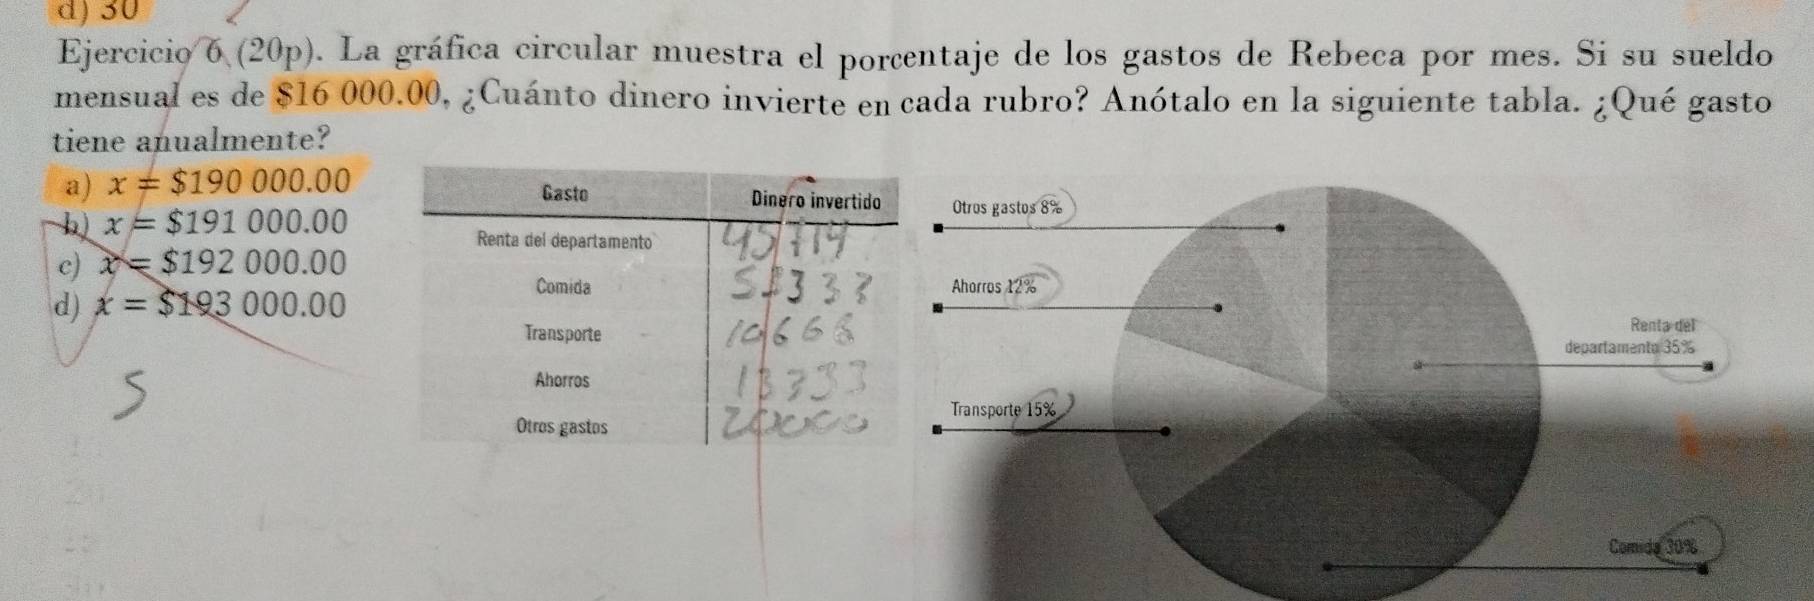 d) 30
Ejercicio 6 (20p). La gráfica circular muestra el porcentaje de los gastos de Rebeca por mes. Si su sueldo
mensual es de $16 000.00, ¿Cuánto dinero invierte en cada rubro? Anótalo en la siguiente tabla. ¿Qué gasto
tiene anualmente?
a) x = $190 000.00
b) x = $191 000.00
c) x = $192 000.00
d) x = $193 000.00
5
Gasto Dinero invertido
Renta del departamento 45714
Comida 53333
Transporte 10666
Ahorros 13333
Otros gastos 20000
Otros gastos 8%
Ahorros 12%
Transporte 15%
Renta del
departamento 35%
Comida 30%